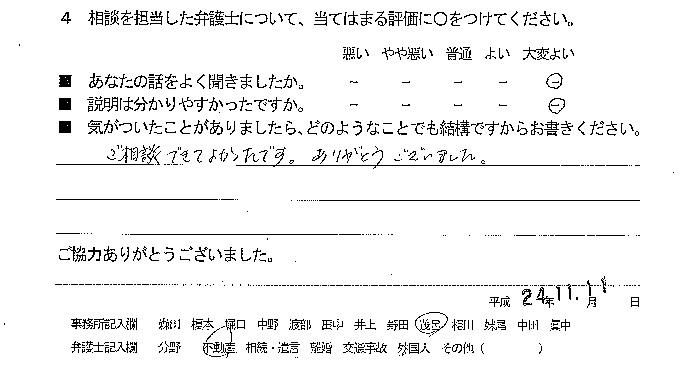 4 相談を担当した弁護士について、当てはまる評価に〇をつけてください。
悪い やや悪い 普通 よい 大変よい
■ あなたの話をよく聞きましたか。 － － － － －
■ 説明は分かりやすかったですか。 － － － － －
■ 気がついたことがありましたら、どのようなことでも結構ですからお書きください。
ご相談できてよかったです。ありがとうございました。
ご協力ありがとうございました。
平成 24年11月11日
事務所記入欄 榎本 堀口 中野 渡部 田中 井上 野田 相川 妹尾 中田
弁護士記入欄 分野 不動産 相続・遺言 離婚 交通事故 外国人 その他（ ）